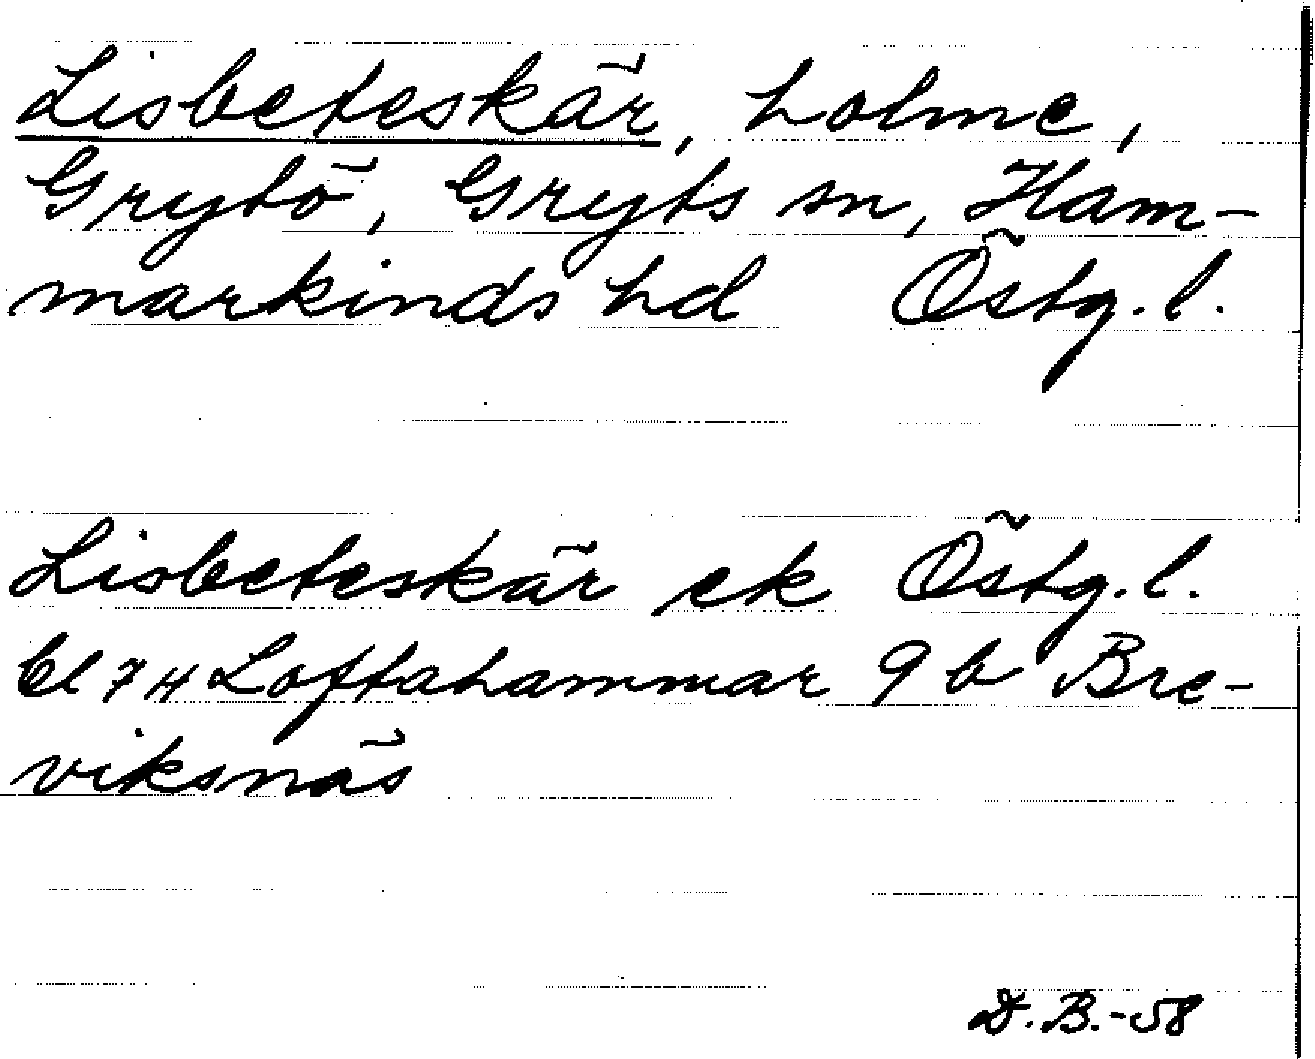 Lisbeteskär, holme,
Grytö, Gryts sn, Ham-
markinds hd Östg. l.
Lisbeteskär ek Östg. l.
bl 74 Loftahammar 9 b Bre-
viksnäs
D. B. -58